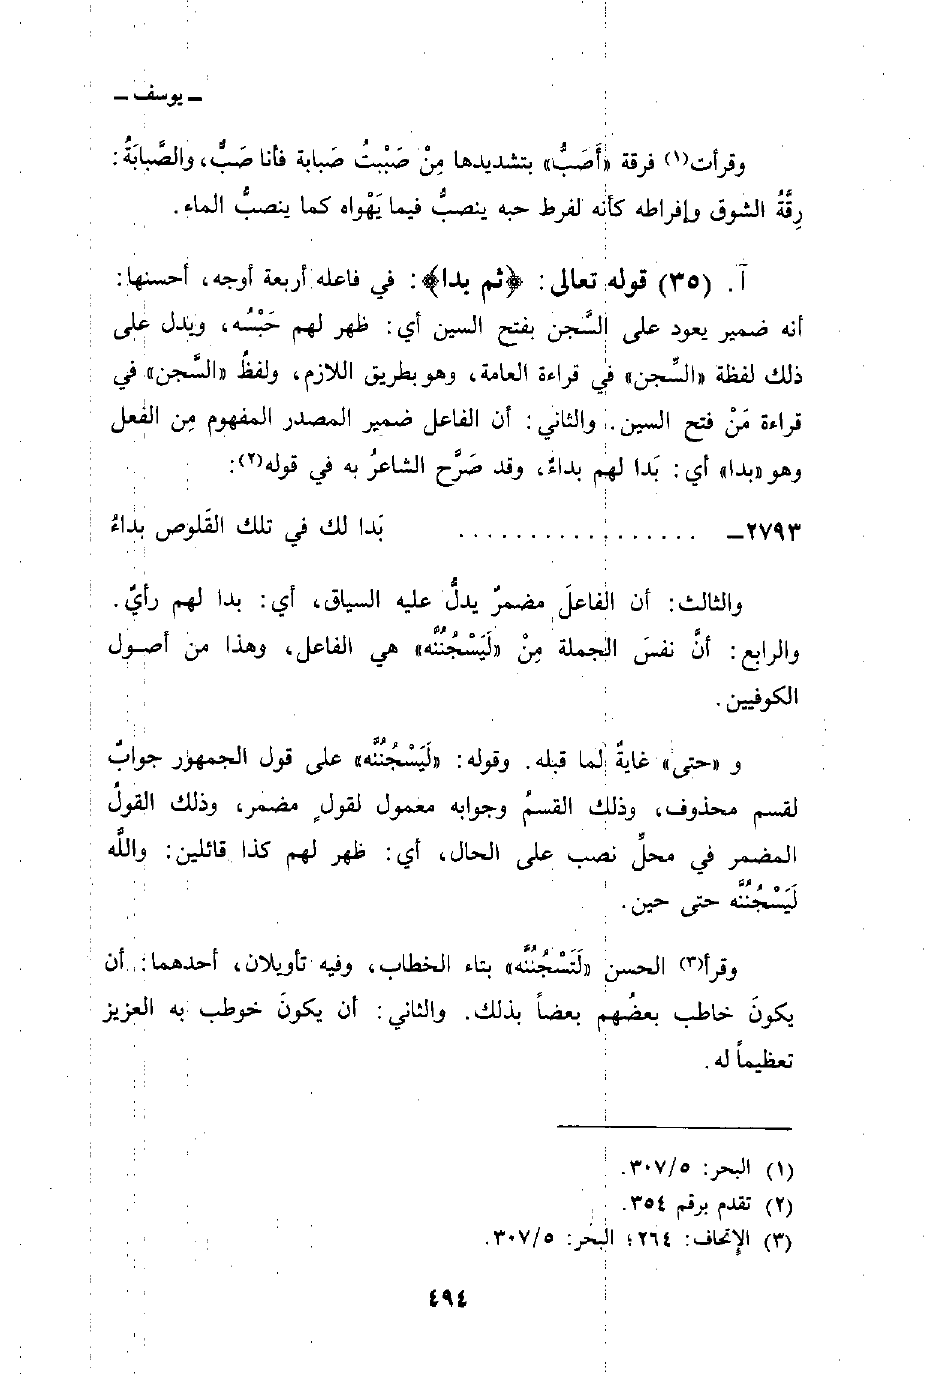 ـ يوسف ـ
وقرأت(١) فرقة «أَصَبُّ» بتشديدها مِنْ صَبْبتُ صَبابة فأنا صَبٌّ، والصَّبابَةُ:
رِقَّةُ الشوق وإفراطه كأنه لفرط حبه ينصبُّ فيما يَهْواه كما ينصبُّ الماء.
آ. (٣٥) قوله تعالى: ﴿ثم بدا﴾: في فاعله أربعة أوجه، أحسنها:
أنه ضمير يعود على السَّجن بفتح السين أي: ظهر لهم حَبْسُه، ويدل على
ذلك لفظة «السِّجن» في قراءة العامة، وهو بطريق اللازم، ولفظُ «السَّجن» في
قراءة مَنْ فتح السين. والثاني: أن الفاعل ضمير المصدر المفهوم مِن الفعل
وهو «بدا» أي: بَدا لهم بداءٌ، وقد صَرَّح الشاعرُ به في قوله(٢):
٢٧٩٣ـ ................. بَدا لك في تلك القَلوص بَداءُ
والثالث: أن الفاعلَ مضمرٌ يدلُّ عليه السياق، أي: بدا لهم رأيٌ.
والرابع: أنَّ نفسَ الجملة مِنْ «لَيَسْجُنُنَّه» هي الفاعل، وهذا من أصول
الكوفيين.
و «حتى» غايةٌ لما قبله. وقوله: «لَيَسْجُنُنَّه» على قول الجمهور جوابٌ
لقسم محذوف، وذلك القسمُ وجوابه معمول لقولٍ مضمر، وذلك القولُ
المضمر في محلِّ نصب على الحال، أي: ظهر لهم كذا قائلين: واللَّه
لَيَسْجُنُنَّه حتى حين.
وقرأ(٣) الحسن «لَتَسْجُنُنَّه» بتاء الخطاب، وفيه تأويلان، أحدهما: أن
يكونَ خاطب بعضُهم بعضاً بذلك. والثاني: أن يكونَ خوطب به العزيز
تعظيماً له.
(١) البحر: ٣٠٧/٥.
(٢) تقدم برقم ٣٥٤.
(٣) الإتحاف: ٢٦٤؛ البحر: ٣٠٧/٥.
٤٩٤